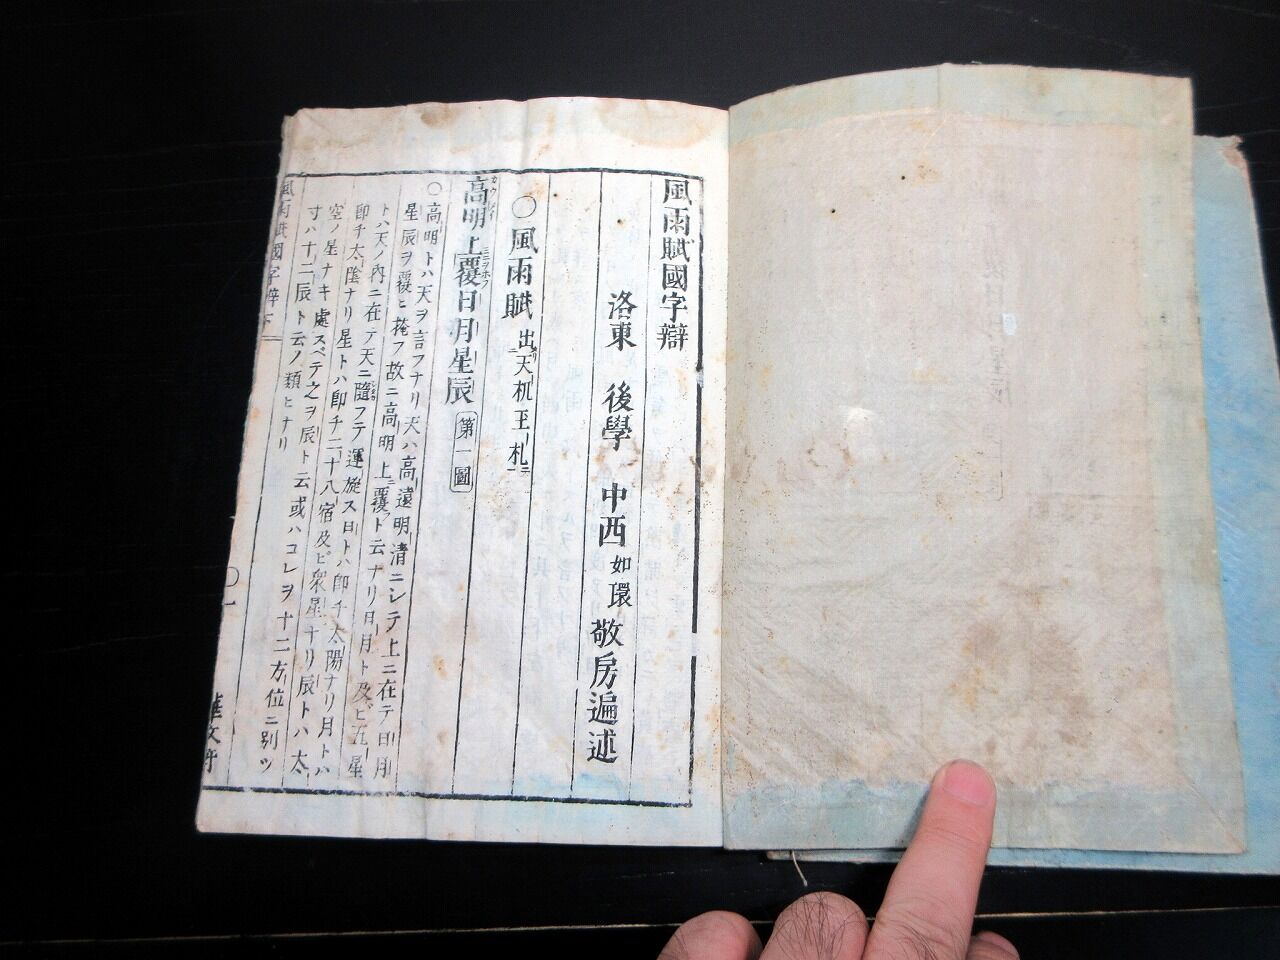 風雨賦國字辯
洛東 後學 中西如環敬房遍述
〇風雨賦 出天机玉札
高明上覆日月星辰 第一圖
〇高明トハ天ヲ言フナリ天ハ高遠明清ニシテ上ニ在テ日月
星辰ヲ覆ヒ掩フ故ニ高明上覆ト云ナリ日月ト及ビ五星
トハ天ノ内ニ在テ天ニ隨フテ運旋ス日トハ即チ太陽ナリ月トハ
即チ太陰ナリ星トハ即チ二十八宿及ビ衆星ナリ辰トハ太
空ノ星ナキ處スベテ之ヲ辰ト云或ハコレヲ十二方位ニ別ツ
寸ハ十二辰ト云ノ類ヒナリ
風雨賦國字辯下
〇一